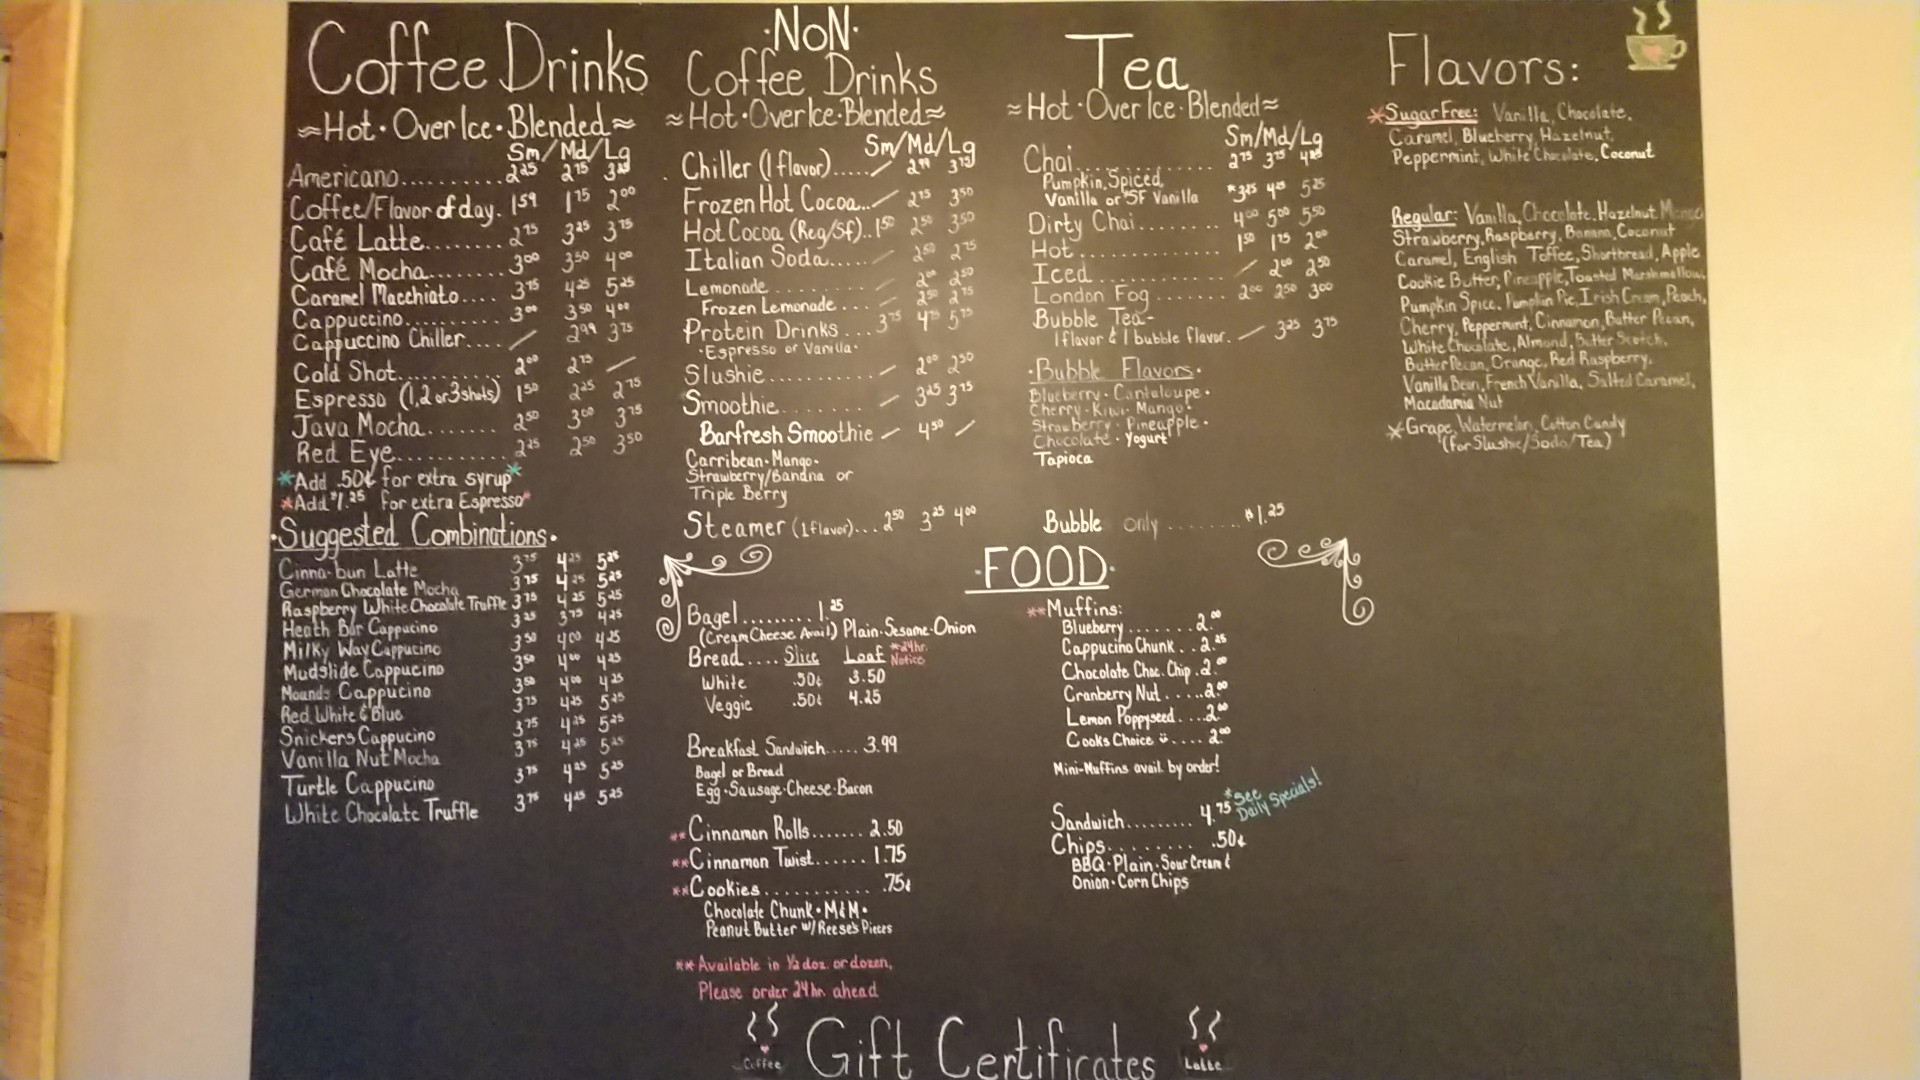 Coffee Drinks
≈Hot·Over Ice·Blended≈
Sm/Md/Lg
Americano.......... 2.25 2.75 3.25
Coffee/Flavor of day. 1.59 1.75 2.00
Café Latte....... 2.75 3.25 3.75
Café Mocha....... 3.00 3.50 4.00
Caramel Macchiato.... 3.75 4.25 5.25
Cappuccino.......... 3.00 3.50 4.00
Cappuccino Chiller.... / 2.99 3.75
Cold Shot.......... 2.00 2.75 /
Espresso (1,2 or 3 shots) 1.50 2.25 2.75
Java Mocha....... 2.50 3.00 3.75
Red Eye........... 2.25 2.50 3.50
*Add .50¢ for extra syrup*
*Add $1.25 for extra Espresso*
·Suggested Combinations·
Cinna-bun Latte 3.75 4.25 5.25
German Chocolate Mocha 3.75 4.25 5.25
Raspberry White Chocolate Truffle 3.75 4.25 5.25
Heath Bar Cappucino 3.25 3.75 4.25
Milky Way Cappucino 3.50 4.00 4.25
Mudslide Cappucino 3.50 4.00 4.25
Mounds Cappucino 3.50 4.00 4.25
Red, White & Blue 3.75 4.25 5.25
Snickers Cappucino 3.75 4.25 5.25
Vanilla Nut Mocha 3.75 4.25 5.25
Turtle Cappucino 3.75 4.25 5.25
White Chocolate Truffle 3.75 4.25 5.25
·NoN·
Coffee Drinks
≈Hot·Over Ice·Blended≈
Sm/Md/Lg
Chiller (1 flavor)..... / 2.99 3.75
Frozen Hot Cocoa... / 2.75 3.50
Hot Cocoa (Reg/SF).. 1.50 2.50 3.50
Italian Soda..... / 2.50 2.75
Lemonade........... / 2.00 2.50
Frozen Lemonade.... / 2.50 2.75
Protein Drinks... 3.75 4.75 5.75
·Espresso or Vanilla·
Slushie........... / 2.00 2.50
Smoothie........ / 3.25 3.75
Barfresh Smoothie / 4.50 /
Carribean·Mango·
Strawberry/Banana or
Triple Berry
Steamer (1 flavor)... 2.50 3.25 4.00
Tea
≈Hot·Over Ice·Blended≈
Sm/Md/Lg
Chai............. 2.75 3.75 4.25
Pumpkin, Spiced,
Vanilla or SF Vanilla *3.25 4.25 5.25
Dirty Chai........ 4.00 5.00 5.50
Hot............. 1.50 1.75 2.00
Iced............ / 2.00 2.50
London Fog....... 2.00 2.50 3.00
Bubble Tea-
1 flavor & 1 bubble flavor. / 3.25 3.75
·Bubble Flavors·
Blueberry·Cantaloupe·
Cherry·Kiwi·Mango·
Strawberry·Pineapple·
Chocolate·Yogurt
Tapioca
Bubble only ........ $1.25
Flavors:
*Sugar Free: Vanilla, Chocolate,
Caramel, Blueberry, Hazelnut,
Peppermint, White Chocolate, Coconut
Regular: Vanilla, Chocolate, Hazelnut, Mango
Strawberry, Raspberry, Banana, Coconut
Caramel, English Toffee, Shortbread, Apple
Cookie Butter, Pineapple, Toasted Marshmallow,
Pumpkin Spice, Pumpkin Pie, Irish Cream, Peach,
Cherry, Peppermint, Cinnamon, Butter Pecan,
White Chocolate, Almond, Butter Scotch,
Butter Pecan, Orange, Red Raspberry,
Vanilla Bean, French Vanilla, Salted Caramel,
Macadamia Nut
*Grape, Watermelon, Cotton Candy
(for Slushie/Soda/Tea)
·FOOD·
Bagel......... 1.25
(Cream Cheese Avail) Plain·Sesame·Onion
Bread.... Slice Loaf *24hr. Notice
White .50¢ 3.50
Veggie .50¢ 4.25
Breakfast Sandwich..... 3.99
Bagel or Bread
Egg·Sausage·Cheese·Bacon
**Cinnamon Rolls....... 2.50
**Cinnamon Twist...... 1.75
**Cookies............ .75¢
Chocolate Chunk·M&M·
Peanut Butter w/Reese's Pieces
**Available in 1/2 doz. or dozen,
Please order 24 hr. ahead
**Muffins:
Blueberry....... 2.00
Cappucino Chunk.. 2.25
Chocolate Choc. Chip. 2.00
Cranberry Nut..... 2.00
Lemon Poppyseed.... 2.00
Cooks Choice ☺.... 2.00
Mini-Muffins avail. by order!
Sandwich......... 4.75 *See Daily Specials!
Chips......... .50¢
BBQ·Plain·Sour Cream &
Onion·Corn Chips
Coffee Gift Certificates Latte